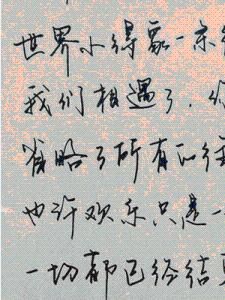 世界小得象一条
我们相遇了，你
省略了所有的往
也许欢乐只是一
一切都已经结